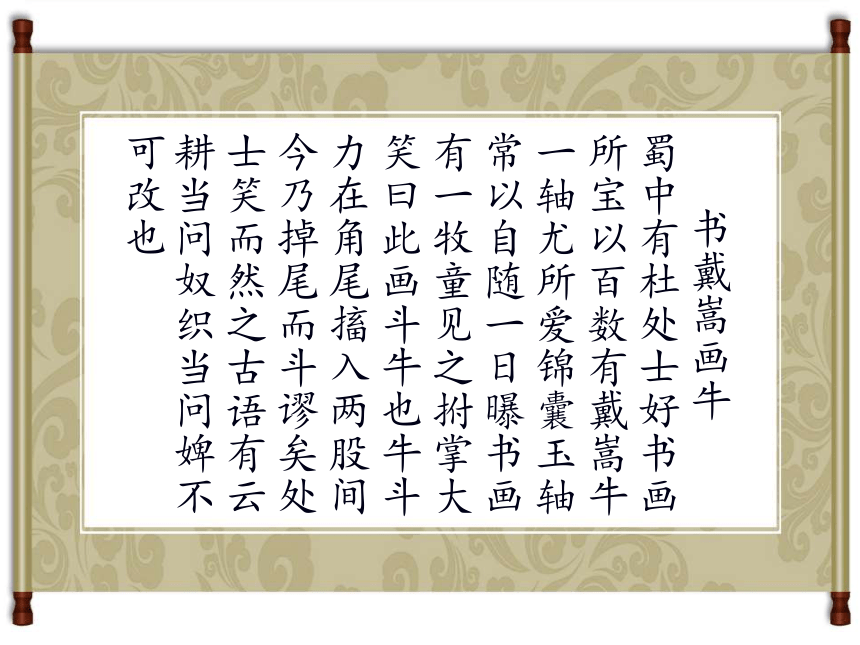 书戴嵩画牛
蜀中有杜处士好书画
所宝以百数有戴嵩牛
一轴尤所爱锦囊玉轴
常以自随一日曝书画
有一牧童见之拊掌大
笑曰此画斗牛也牛斗
力在角尾搐入两股间
今乃掉尾而斗谬矣处
士笑而然之古语有云
耕当问奴织当问婢不
可改也